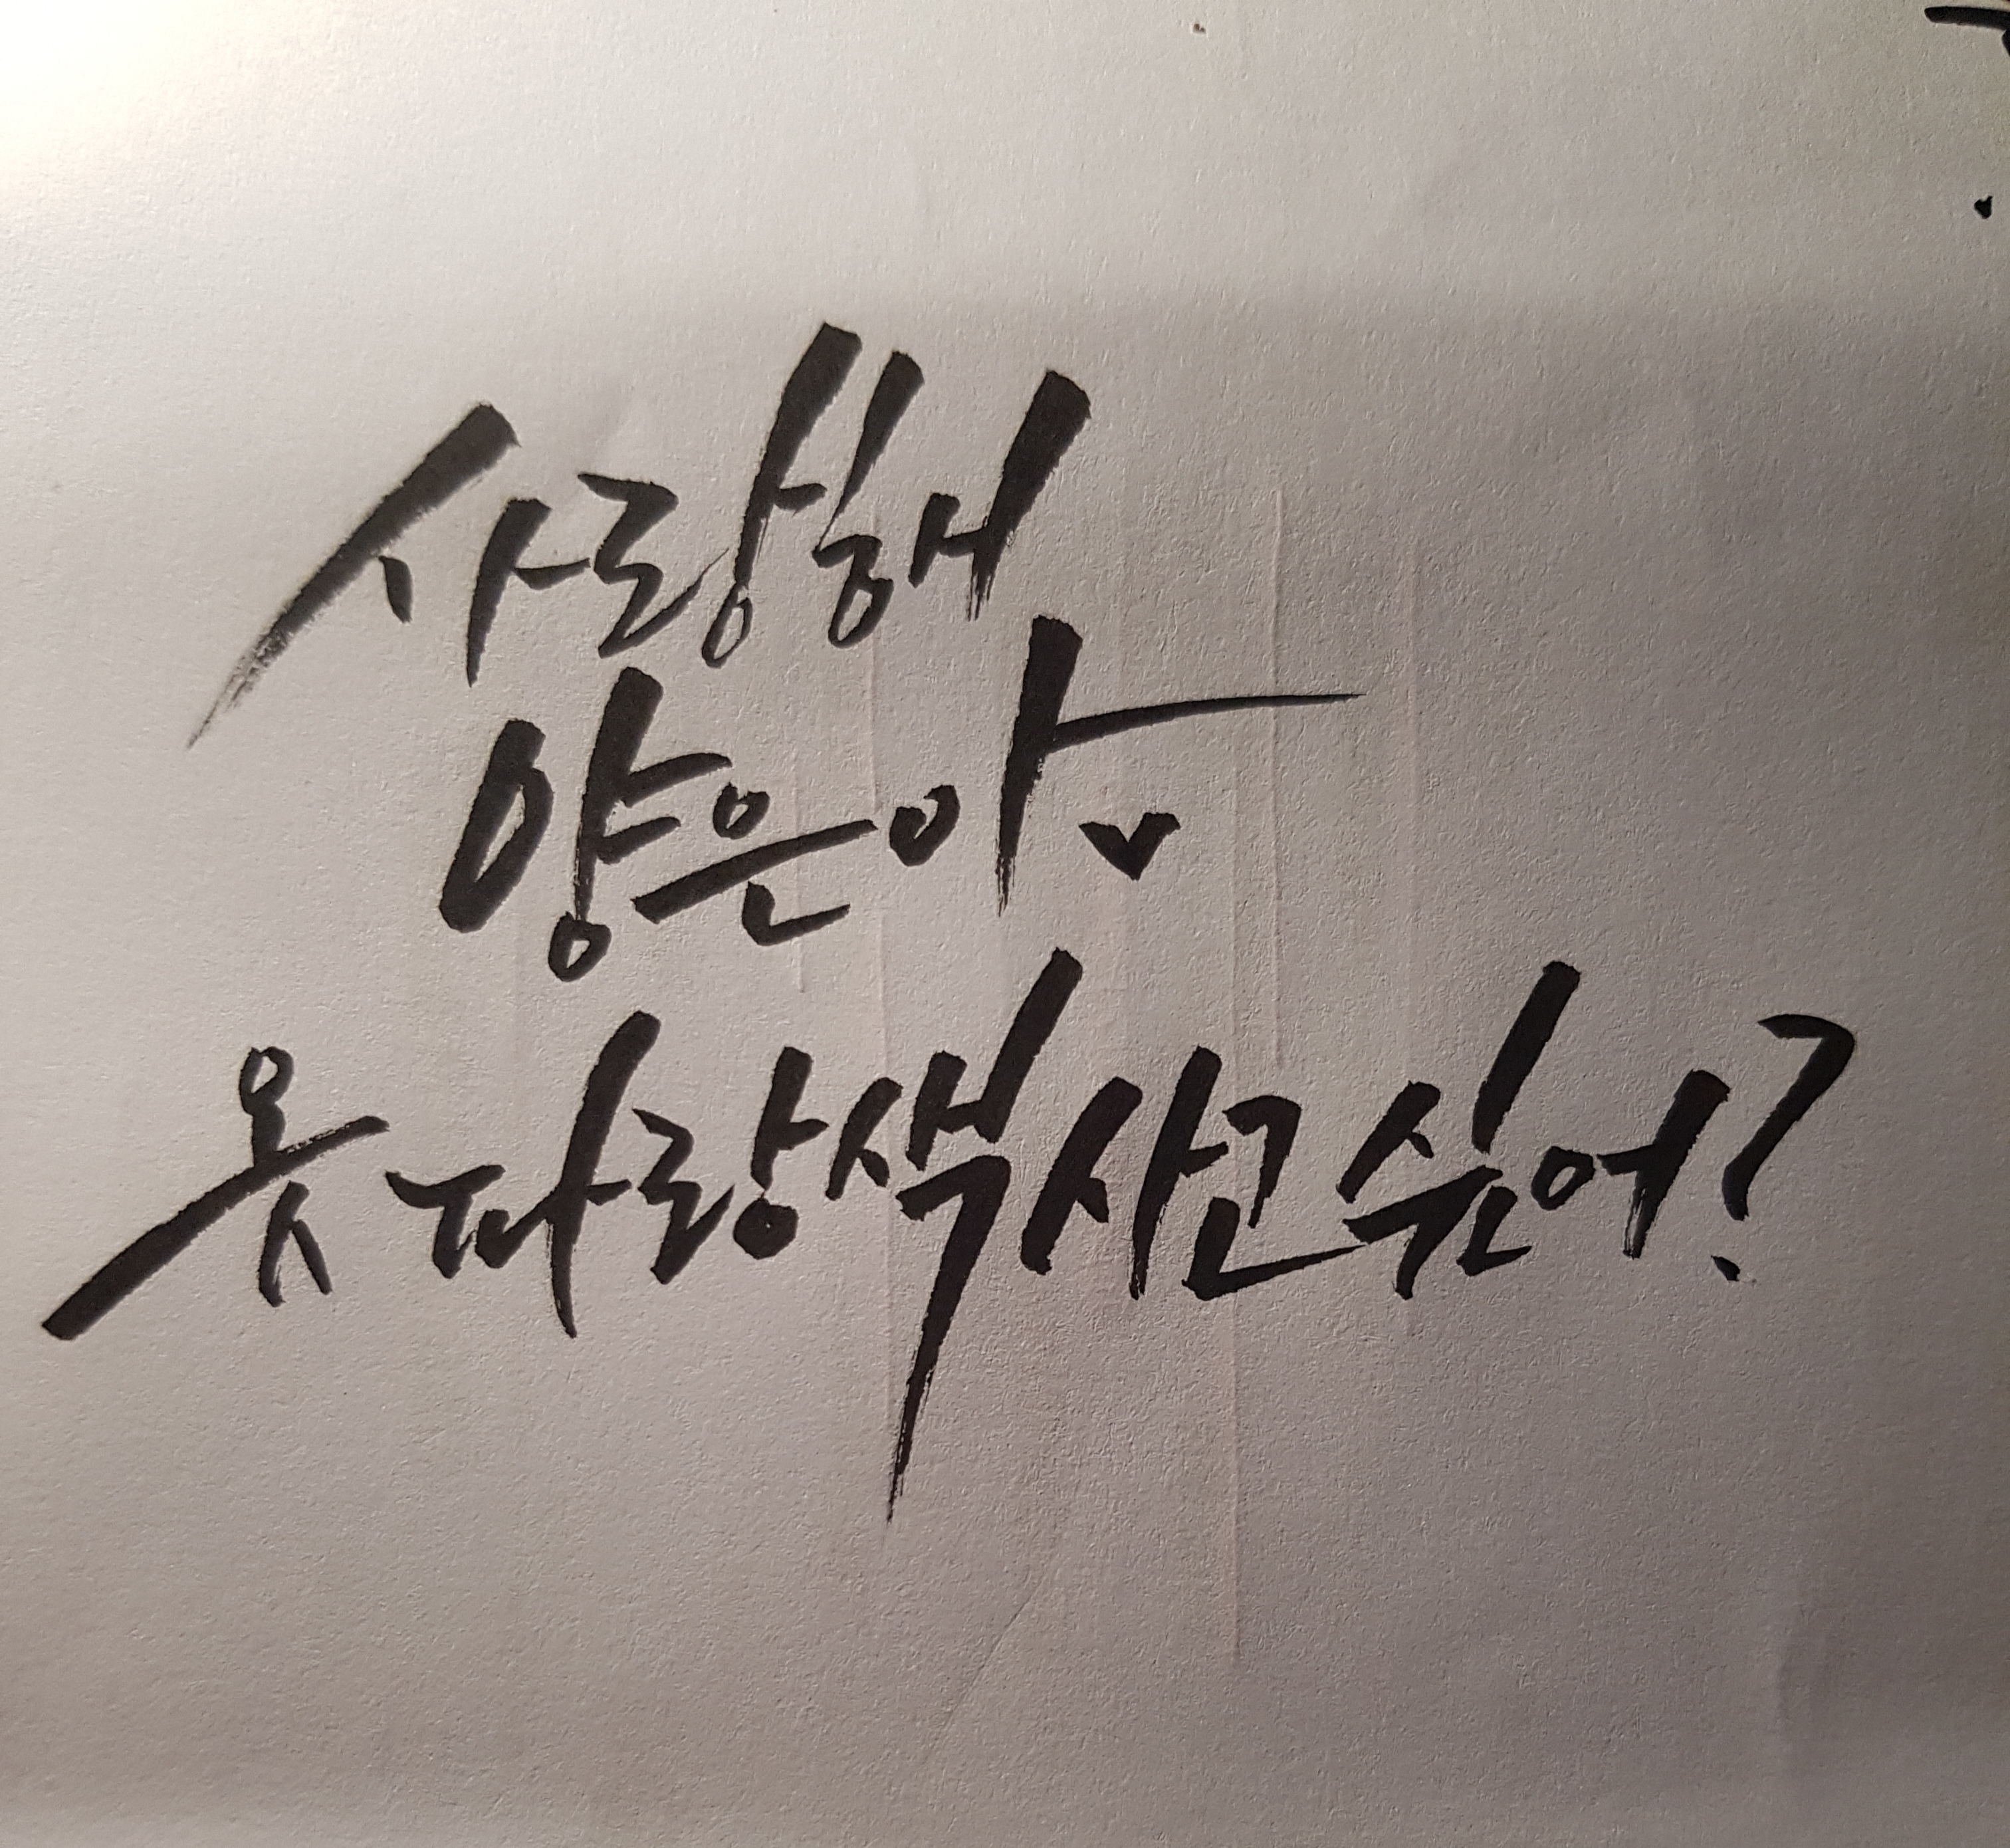 사랑해
양은아♥
옷 파랑색 사고 싶어?